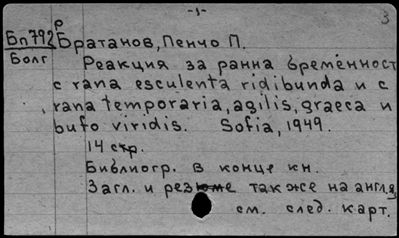 -1-
3
Бп792 р Братанов, Пенчо П.
Болг Реакция за ранна бременност
с rana esculenta ridibunda и с
rana temporaria, agilis, graeca и
bufo viridis. Sofia, 1949.
14 стр.
Библиогр. в конце кн.
Загл. и резюме также на англ. я
см. след. карт.